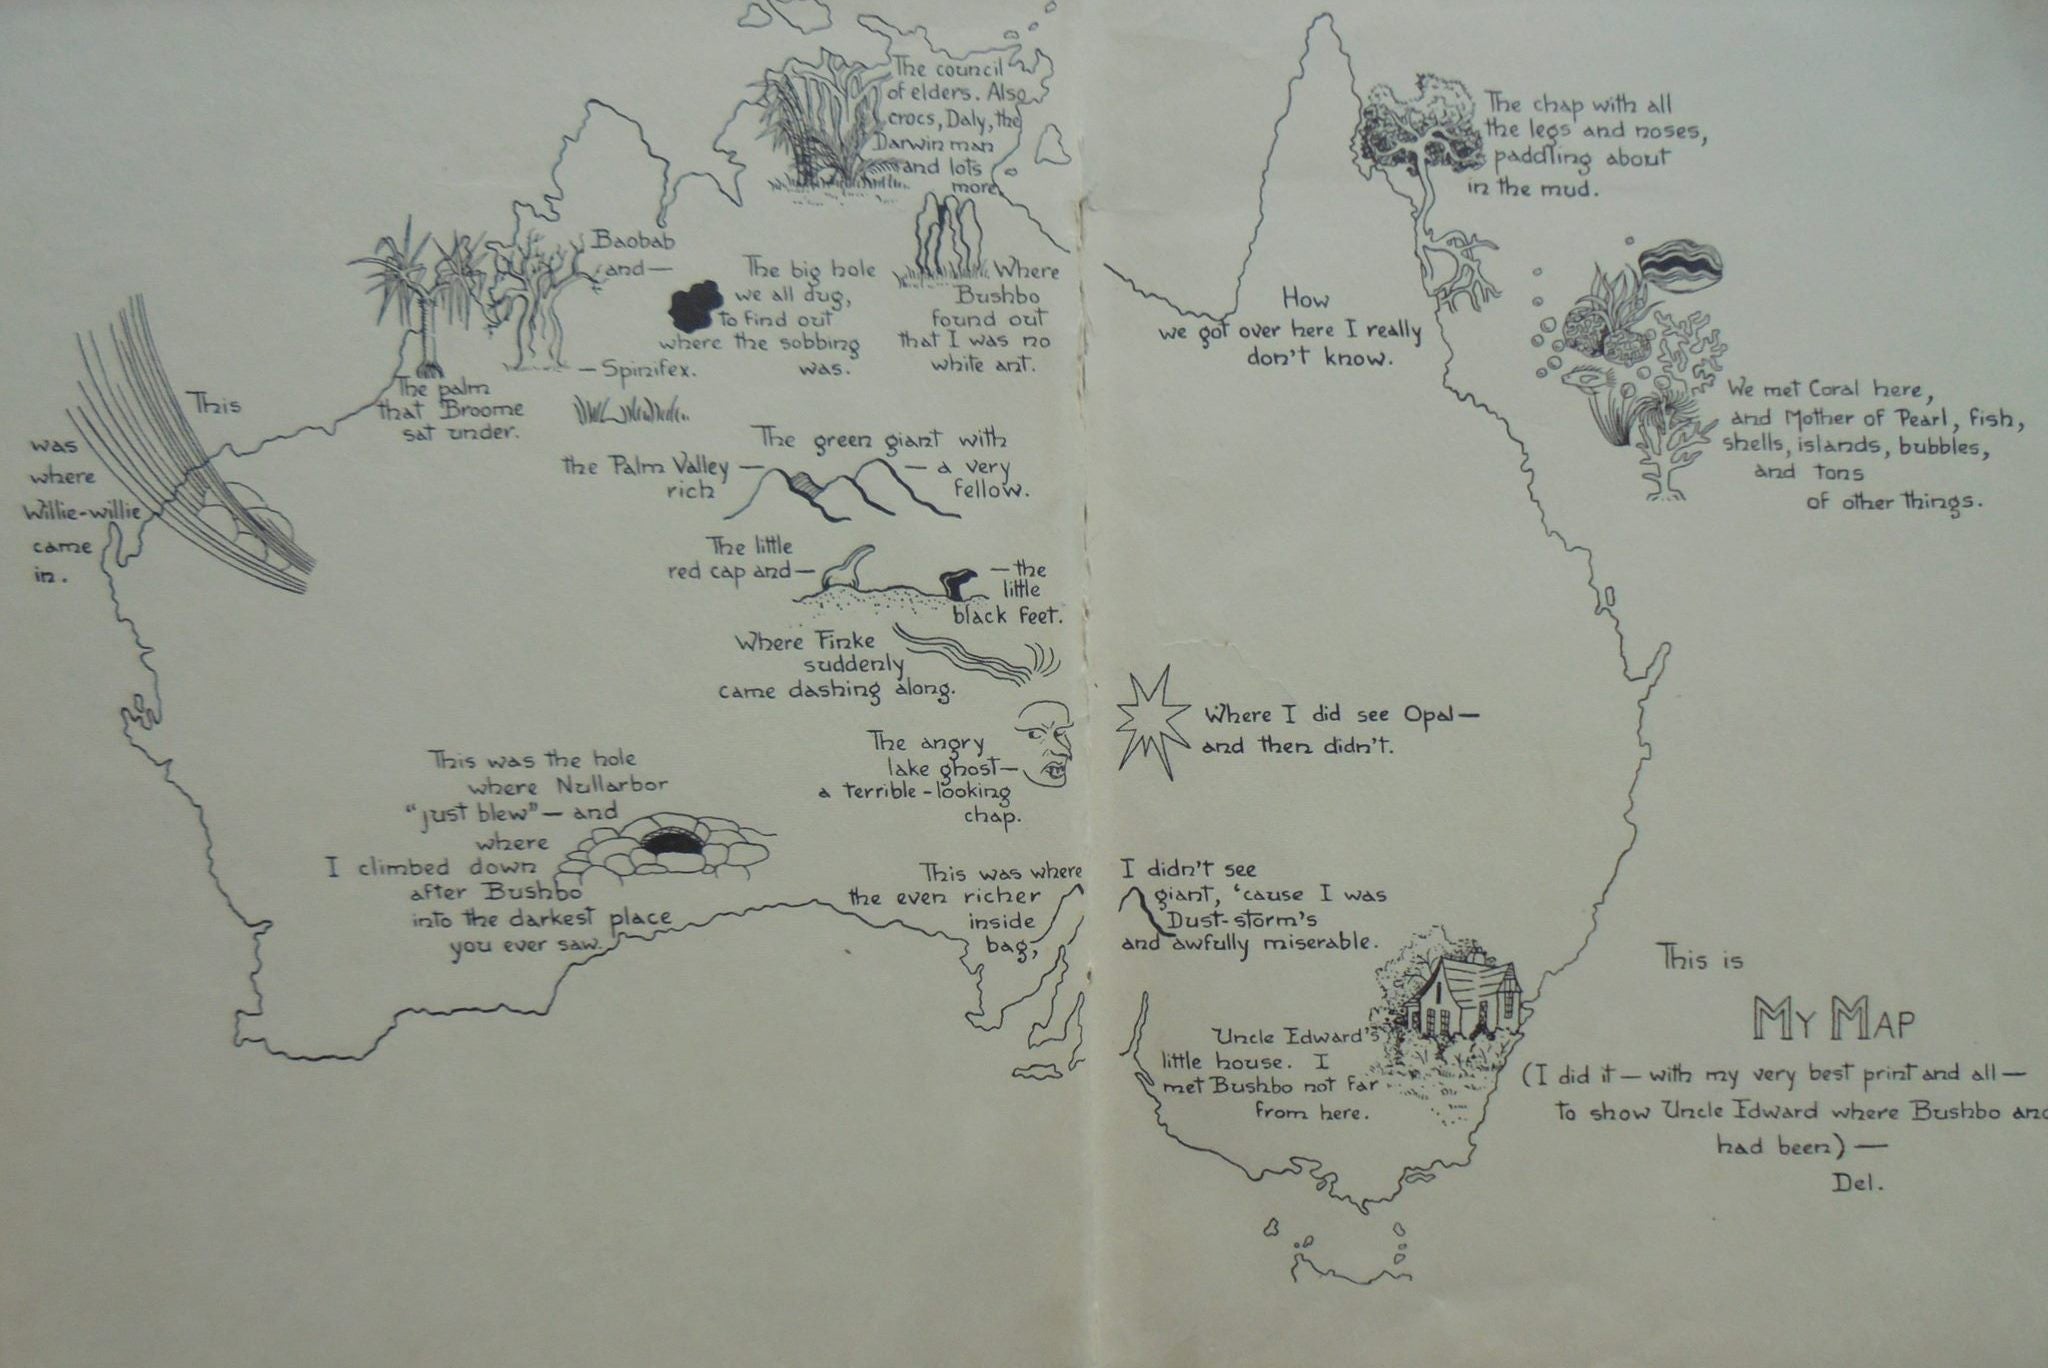 The council
of elders. Also
crocs, Daly, the
Darwin man
and lots
more.
The chap with all
the legs and noses,
paddling about
in the mud.
Baobab
and—
—Spinifex.
The big hole
we all dug,
to find out
where the sobbing
was.
Where
Bushbo
found out
that I was no
white ant.
How
we got over here I really
don't know.
The palm
that Broome
sat under.
This
was
where
Willie-willie
came
in.
We met Coral here,
and Mother of Pearl, fish,
shells, islands, bubbles,
and tons
of other things.
The green giant with
the Palm Valley — — a very
rich fellow.
The little
red cap and— —the
little
black feet.
Where Finke
suddenly
came dashing along.
The angry
lake ghost—
a terrible-looking
chap.
Where I did see Opal—
and then didn't.
This was the hole
where Nullarbor
"just blew"— and
where
I climbed down
after Bushbo
into the darkest place
you ever saw.
This was where I didn't see
the even richer giant, 'cause I was
inside Dust-storm's
bag, and awfully miserable.
Uncle Edward's
little house. I
met Bushbo not far
from here.
This is
My Map
(I did it— with my very best print and all—
to show Uncle Edward where Bushbo and
had been)—
Del.